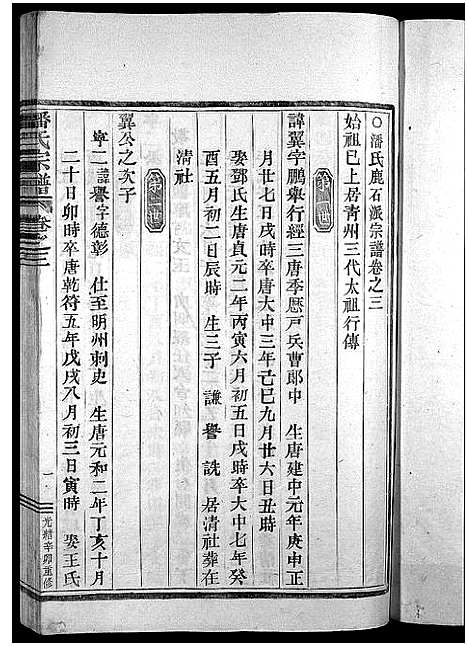 ○潘氏鹿石派宗譜卷之三
始祖巳上居青州三代太祖行傳
第一世
諱翼字鵬舉行經三唐季歷戸兵曹郎中 生唐建中元年庚申正
月廿七日戌時卒唐大中三年己巳九月廿六日丑時
娶鄧氏生唐貞元二年丙寅六月初五日戌時卒大中七年癸
酉五月初二日辰時 生三子 謙 譽 詵 居清社葬在
清社
第二世
翼公之次子
寧二諱譽字德彰 仕至明州刺史 生唐元和二年丁亥十月
二十日卯時卒唐乾符五年戊戌八月初三日寅時 娶王氏
潘氏宗譜 卷之三
一
光緒辛卯重修